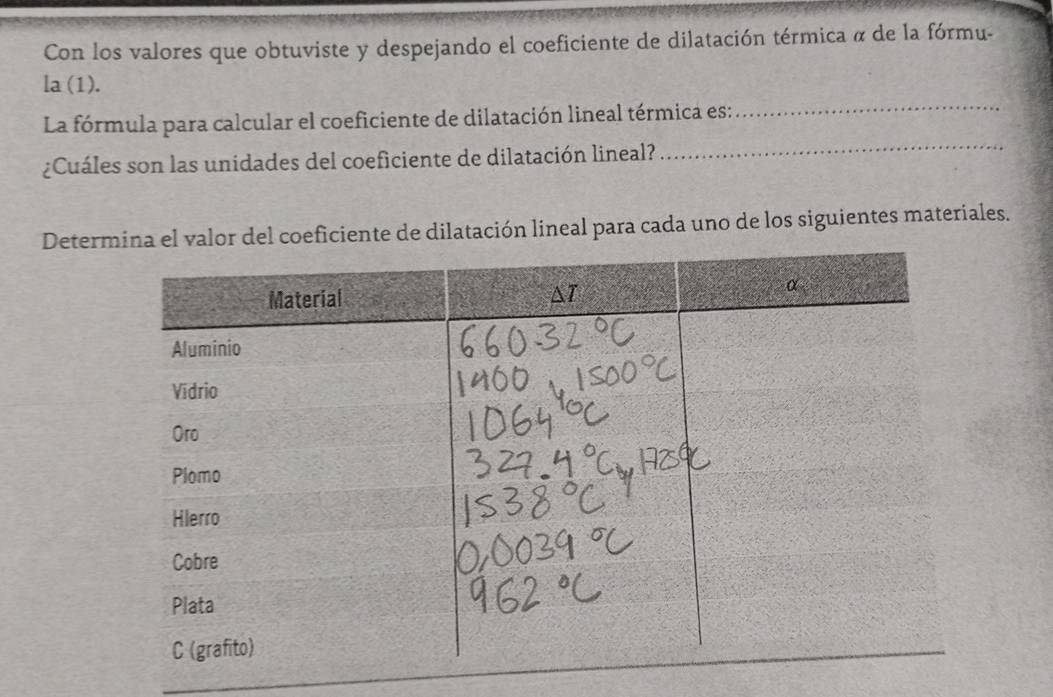 Con los valores que obtuviste y despejando el coeficiente de dilatación térmica α de la fórmu-
la (1).
La fórmula para calcular el coeficiente de dilatación lineal térmica es:
¿Cuáles son las unidades del coeficiente de dilatación lineal?
Determina el valor del coeficiente de dilatación lineal para cada uno de los siguientes materiales.
Material ΔT α
Aluminio 660.32 °C
Vidrio 1400 y 1500°C
Oro 1064 °C
Plomo 327.4 °C y 1725°C
Hierro 1538 °C
Cobre 0,0039 °C
Plata 962 °C
C (grafito)